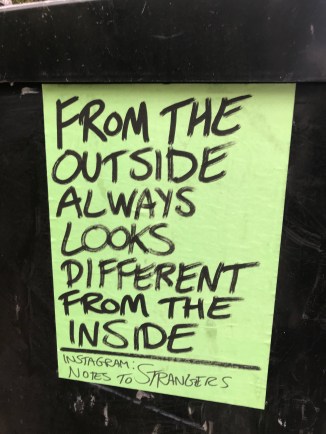 FROM THE
OUTSIDE
ALWAYS
LOOKS
DIFFERENT
FROM THE
INSIDE
INSTAGRAM:
NOTES TO STRANGERS